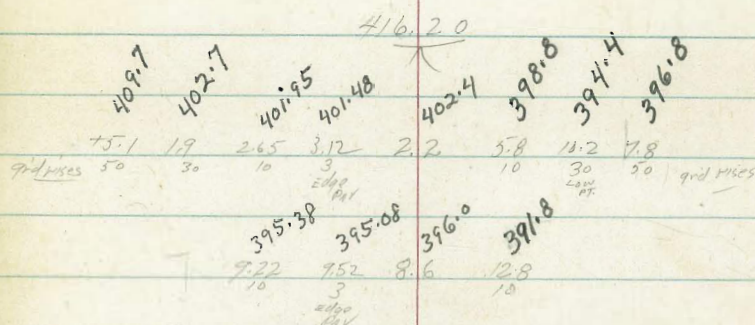 416.20
409.7 402.7 401.95 401.48 402.4 398.8 394.4 396.8
+5.1 1.9 2.65 3.12 2.2 5.8 7.8
grd rises 50 30 10 3 10 30 50 grd rises
Edge LOW
Pav PT.
395.38 395.08 396.0 391.8
9.22 9.52 8.6 12.8
10 3 10
Edge
Pav